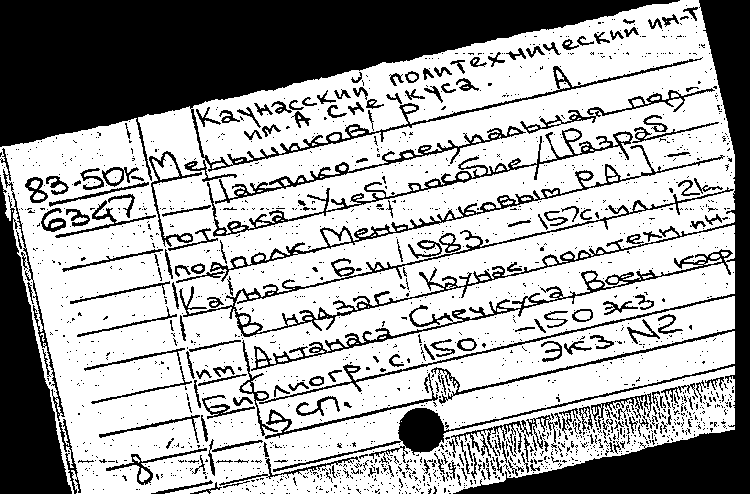 Каунасский политехнический ин-т
им. А. Снечкуса.
83-50к Меньшиков, Р. А.
6347 Тактико-специальная под-
готовка: Учеб. пособие / [Разраб.
подполк. Меньшиковым Р.А.]. –
Каунас: Б.и., 1983. – 157с., ил.; 21см.
В надзаг.: Каунас. политехн. ин-т
им. Антанаса Снечкуса, Воен. каф.
Библиогр.: с. 150. – 150 экз.
ДСП. Экз. N2.
8.